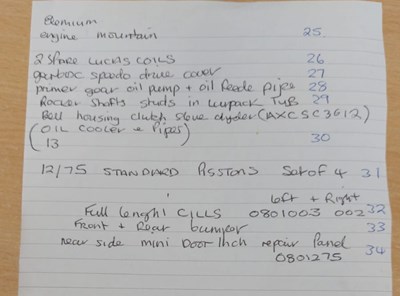 Premium
engine mountain 25.
2 spree LUCAS COILS 26
gearboxc speedo drive cover 27
primer gear oil pump + oil feede pipes 28
Rocker shafts studs in TUB 29
Bell housing clutch slave (AXCSC3612)
(OIL COOLER + Pipes)
13 30
12/75 STANDARD PISSTONS Set of 4 31
left + Right
Full lenght CILLS 0801003 002 32
Front + Rear bumper 33
near side mini Door Inch repair Panel 34
0801275